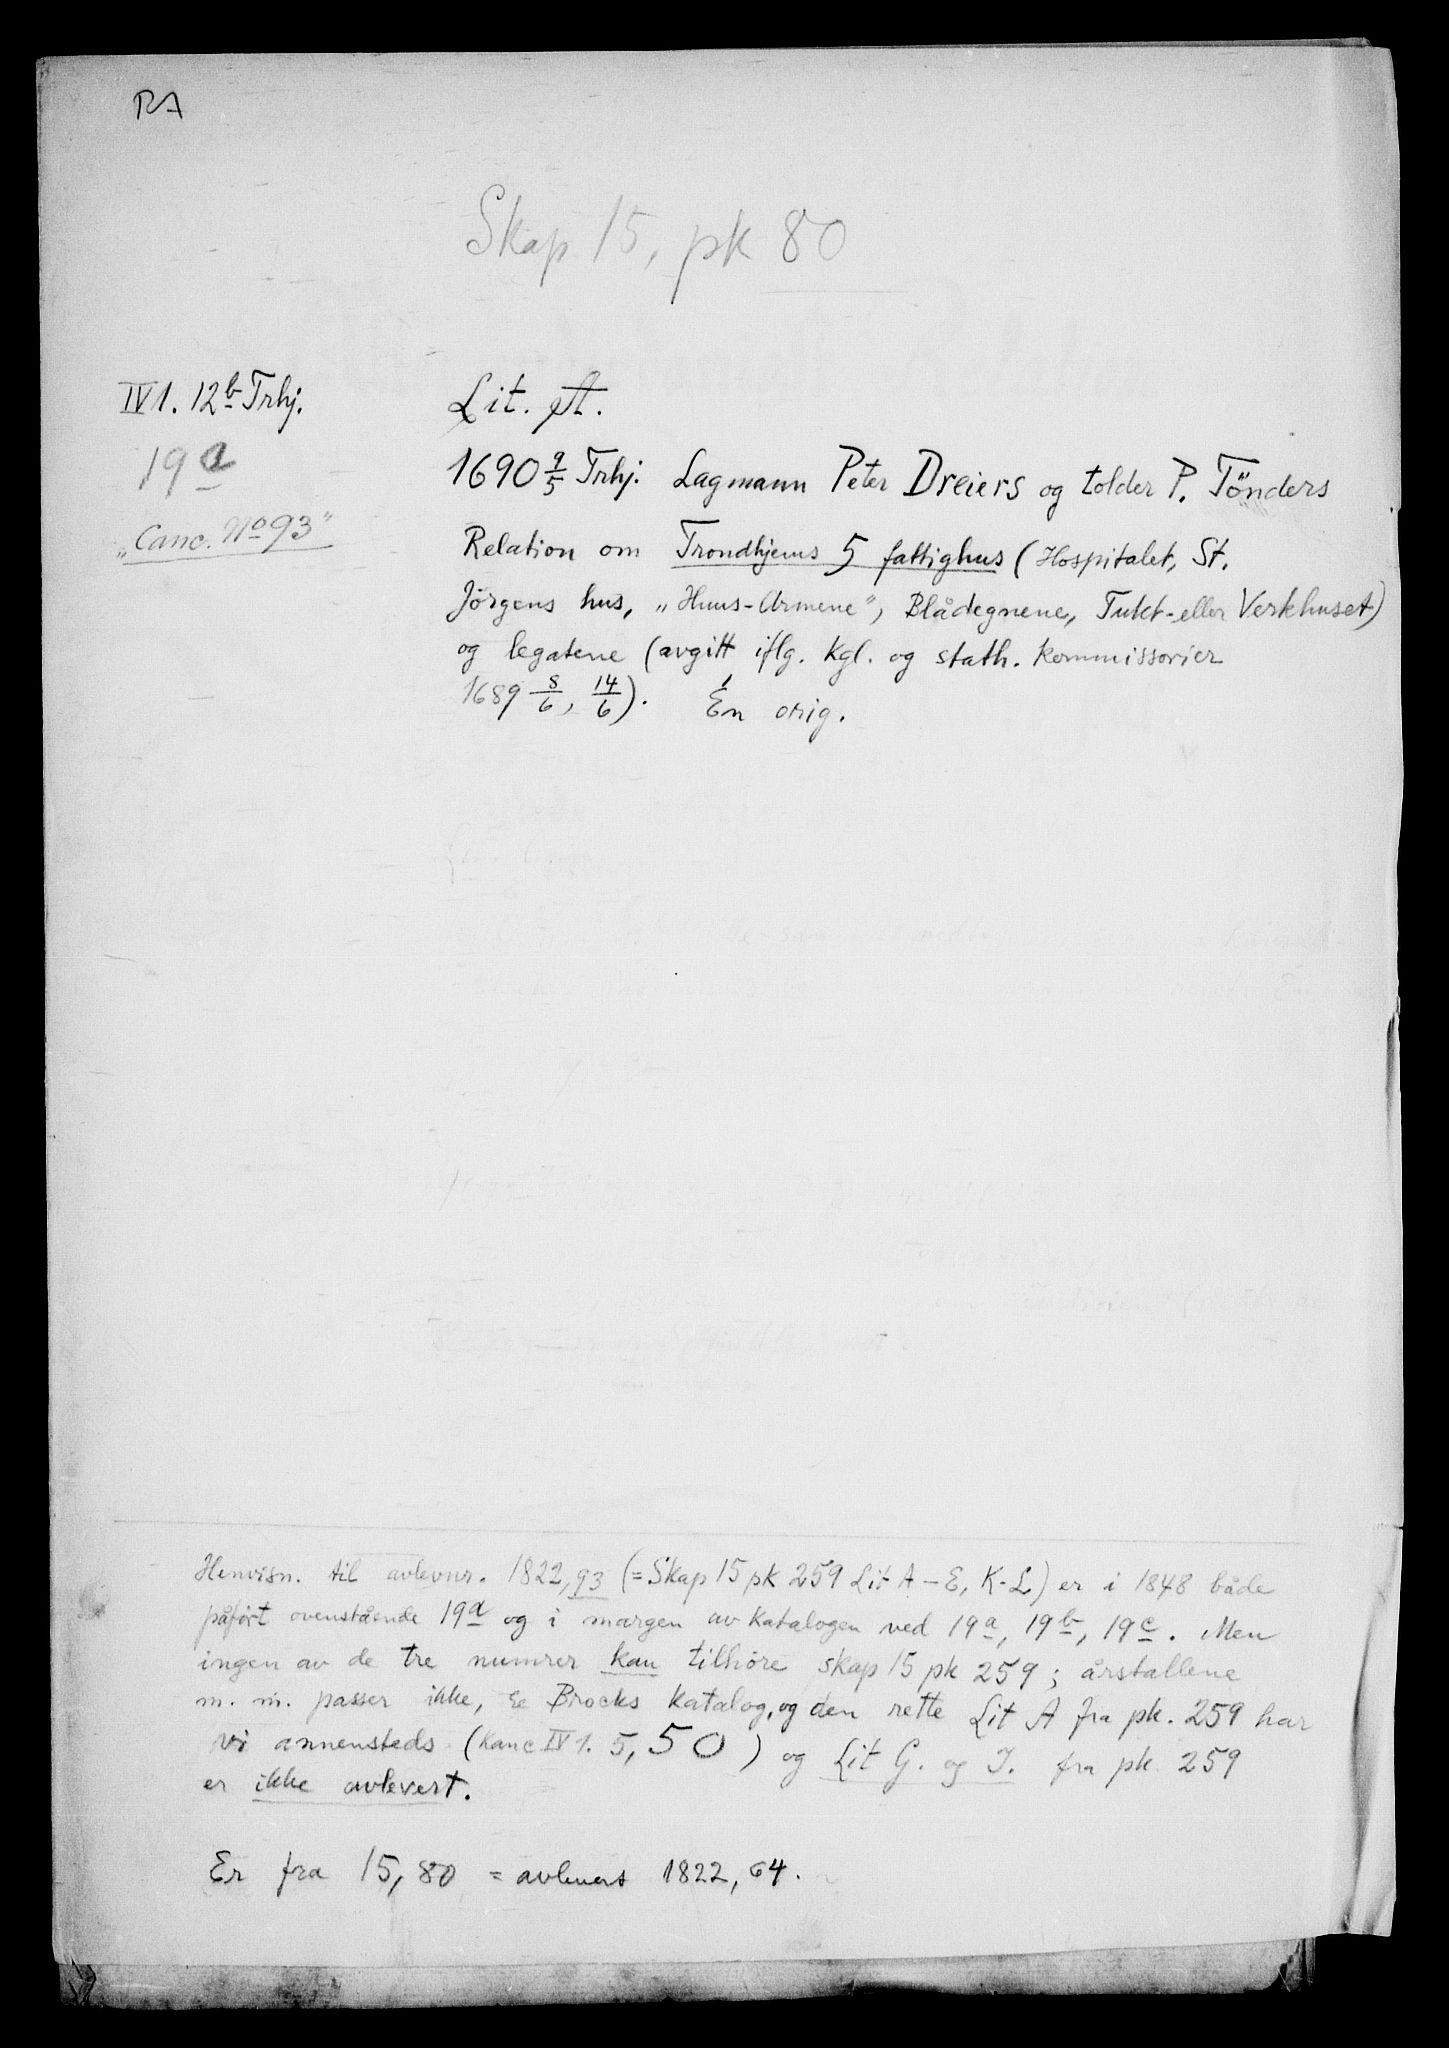 RA
Skap 15, pk 80
IV 1. 12b Trhj.
19a
„Canc. No 93"
Lit. A.
1690 9/5 Trhj. Lagmann Peter Dreiers og tolder P. Tönders
Relation om Trondhjems 5 fattighus (Hospitalet, St.
Jörgens hus, „Huus-Armene", Blådegnene, Tukt- eller Verkhuset)
og legatene (avgitt iflg. kgl. og stath. kommissorier
1689 8/6, 14/6). Én orig.
Henvisn. til avlevnr. 1822, 93 (= Skap 15 pk 259 Lit A – E, K-L) er i 1848 både
påført ovenstående 19a og i margen av katalogen ved 19a, 19b, 19c. Men
ingen av de tre numrer kan tilhøre skap 15 pk 259; årstallene
m. m. passer ikke, se Brocks katalog, og den rette Lit A fra pk. 259 har
vi annensteds (Kanc IV 1. 5, 50) og Lit G. og I. fra pk 259
er ikke avlevert.
Er fra 15, 80 = avlevert 1822, 64.